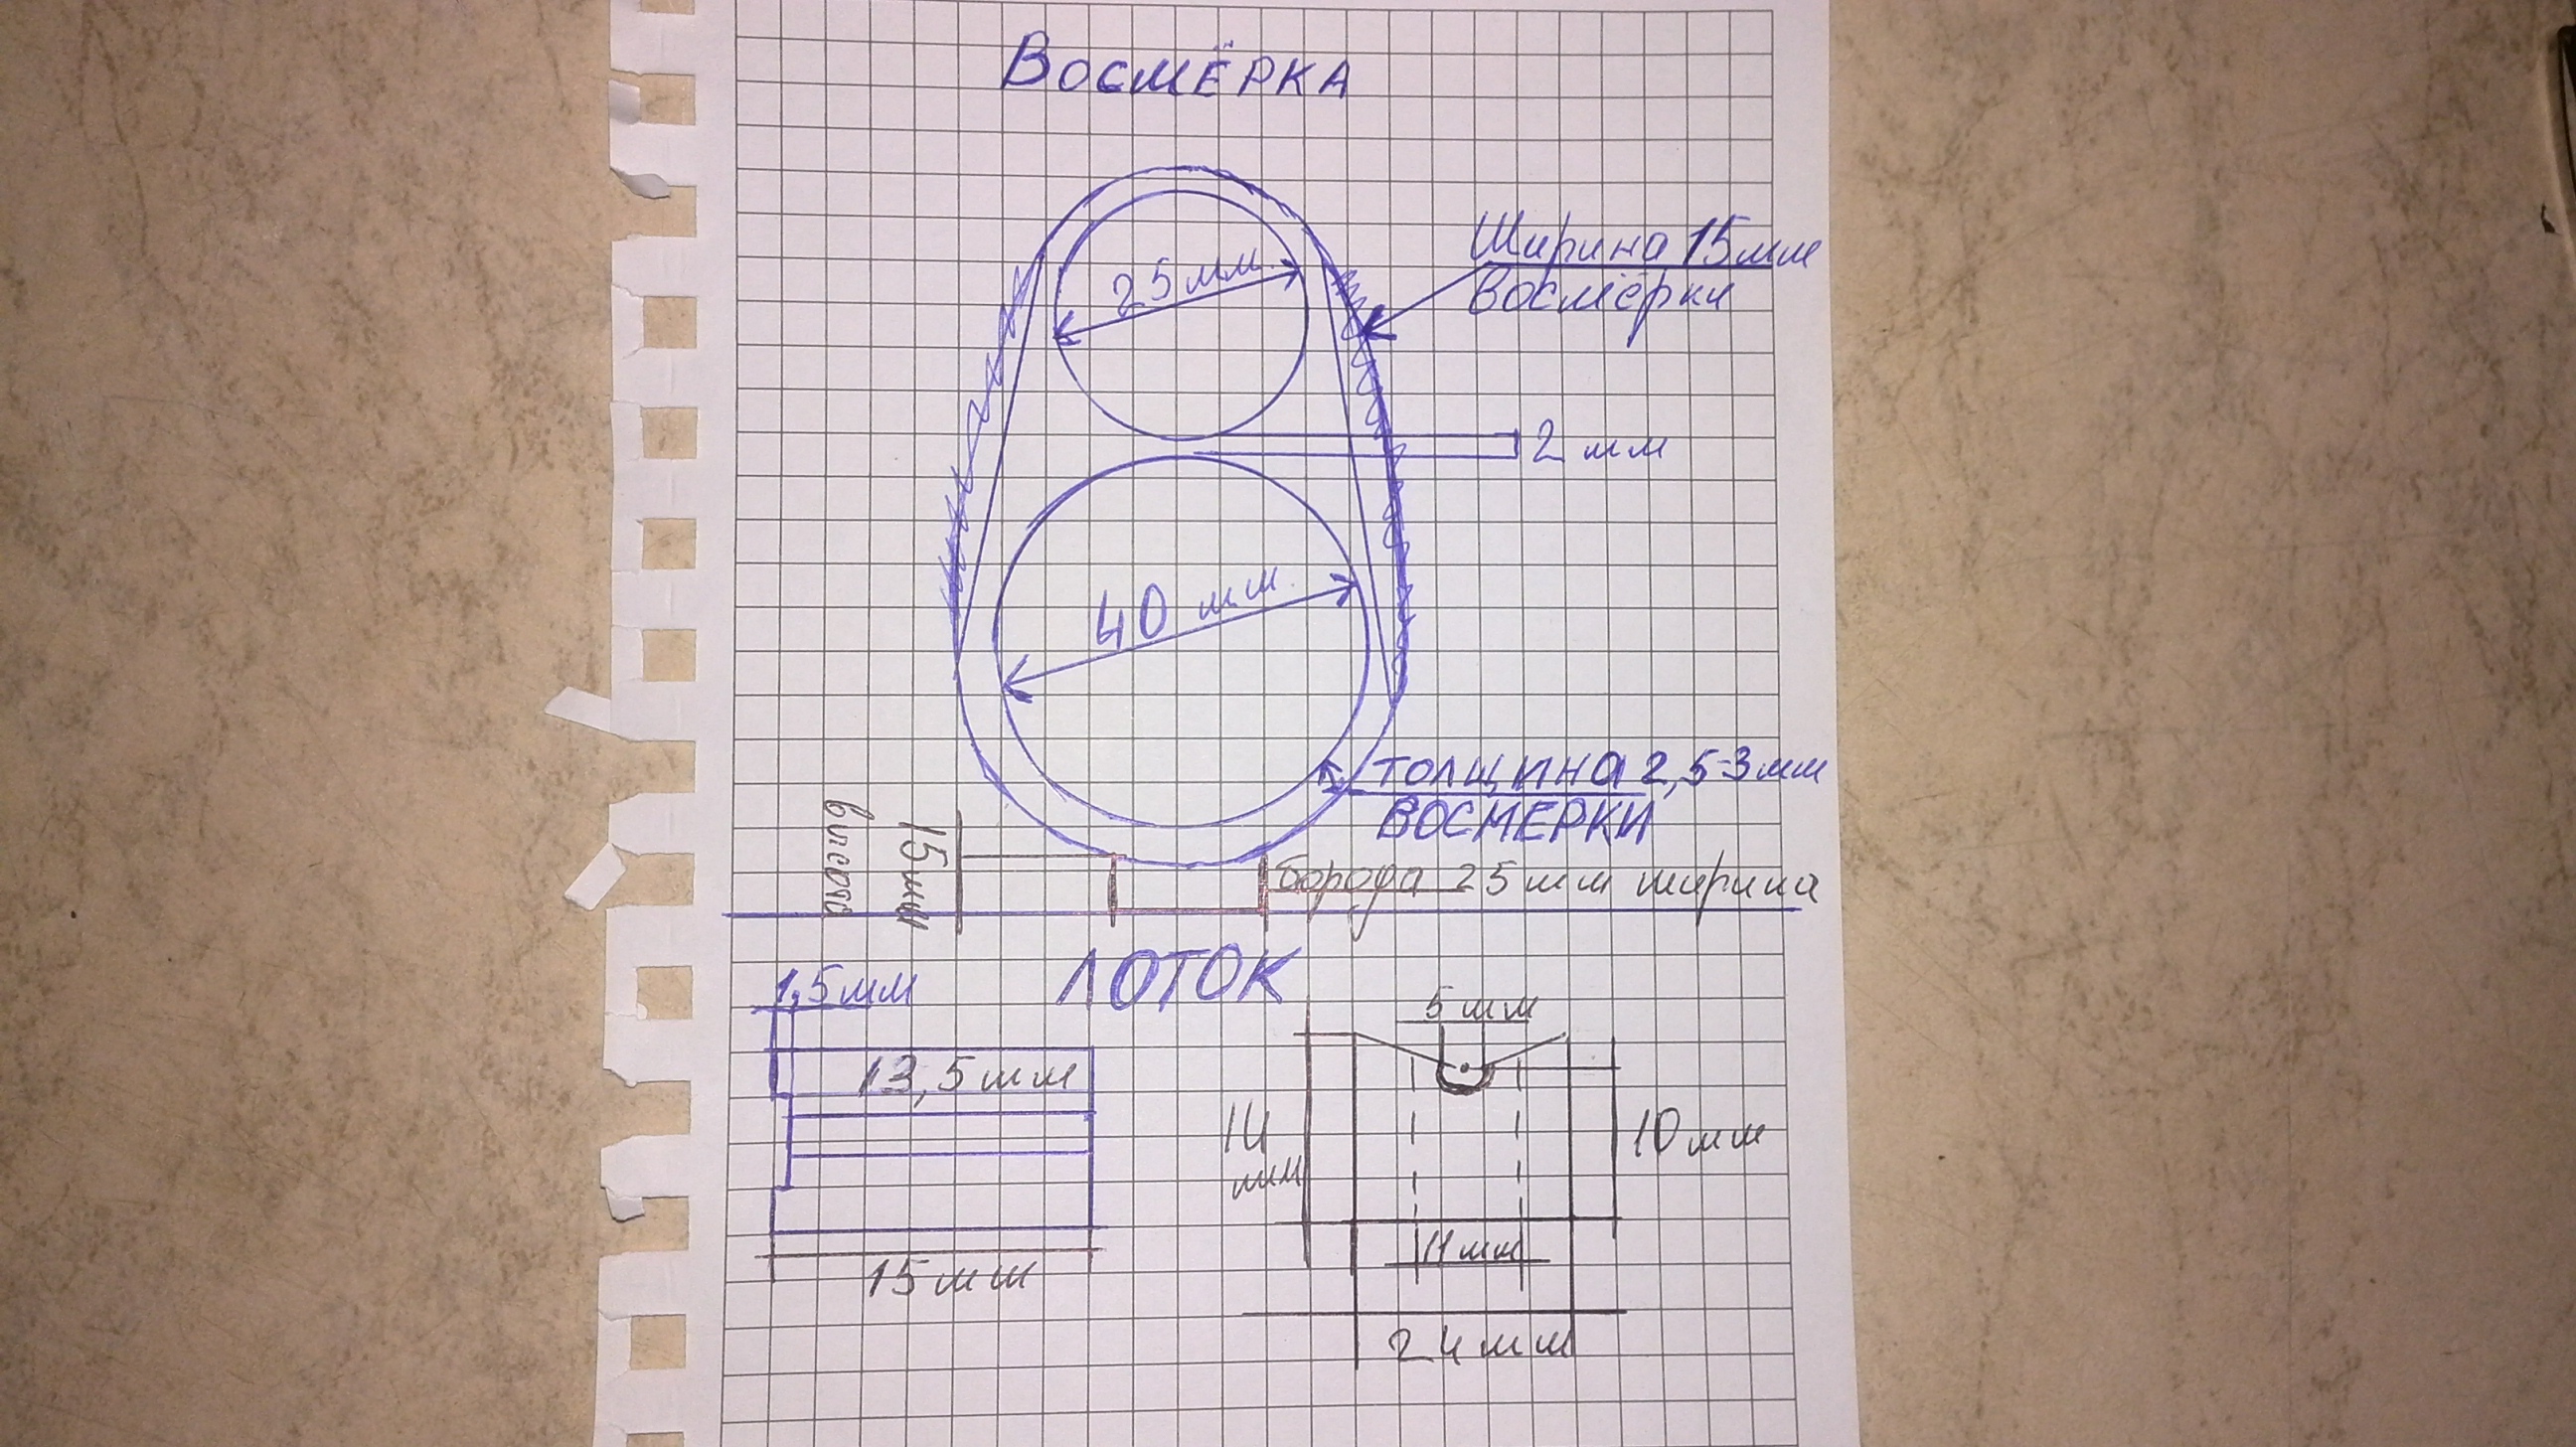 ВОСМЁРКА
25 мм
Ширина 15мм
Восмёрки
2 мм
40 мм
ТОЛЩИНА 2,5-3мм
ВОСМЕРКИ
высота
15мм
борода 25 мм ширина
ЛОТОК
1,5мм
13,5мм
15мм
5 мм
14
мм
10 мм
11мм
24мм